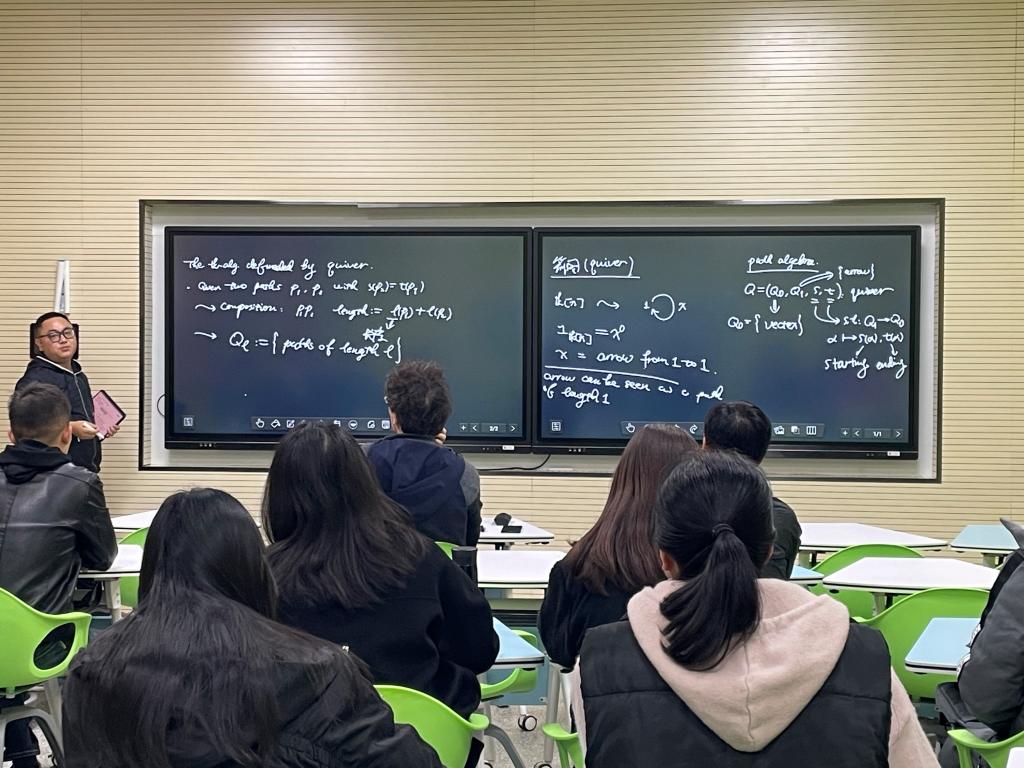 The
by quiver.
· Given two paths p₁, p₂ with s(p₂)=t(p₁)
⇝ Composition: length := l(p₁)+l(p₂)
→ Qₗ := { paths of length l }
2/2
箭图 (quiver)
k[x] ⇝ 1 x
1ₖ[ₓ] = x⁰
x = arrow from 1 to 1.
arrow can be seen as a path
of length 1
path algebra.
{arrow}
Q=(Q₀, Q₁, s, t) quiver
Q₀={ }
s,t: Q₁→Q₀
α ↦ s(α), t(α)
starting ending
1/1